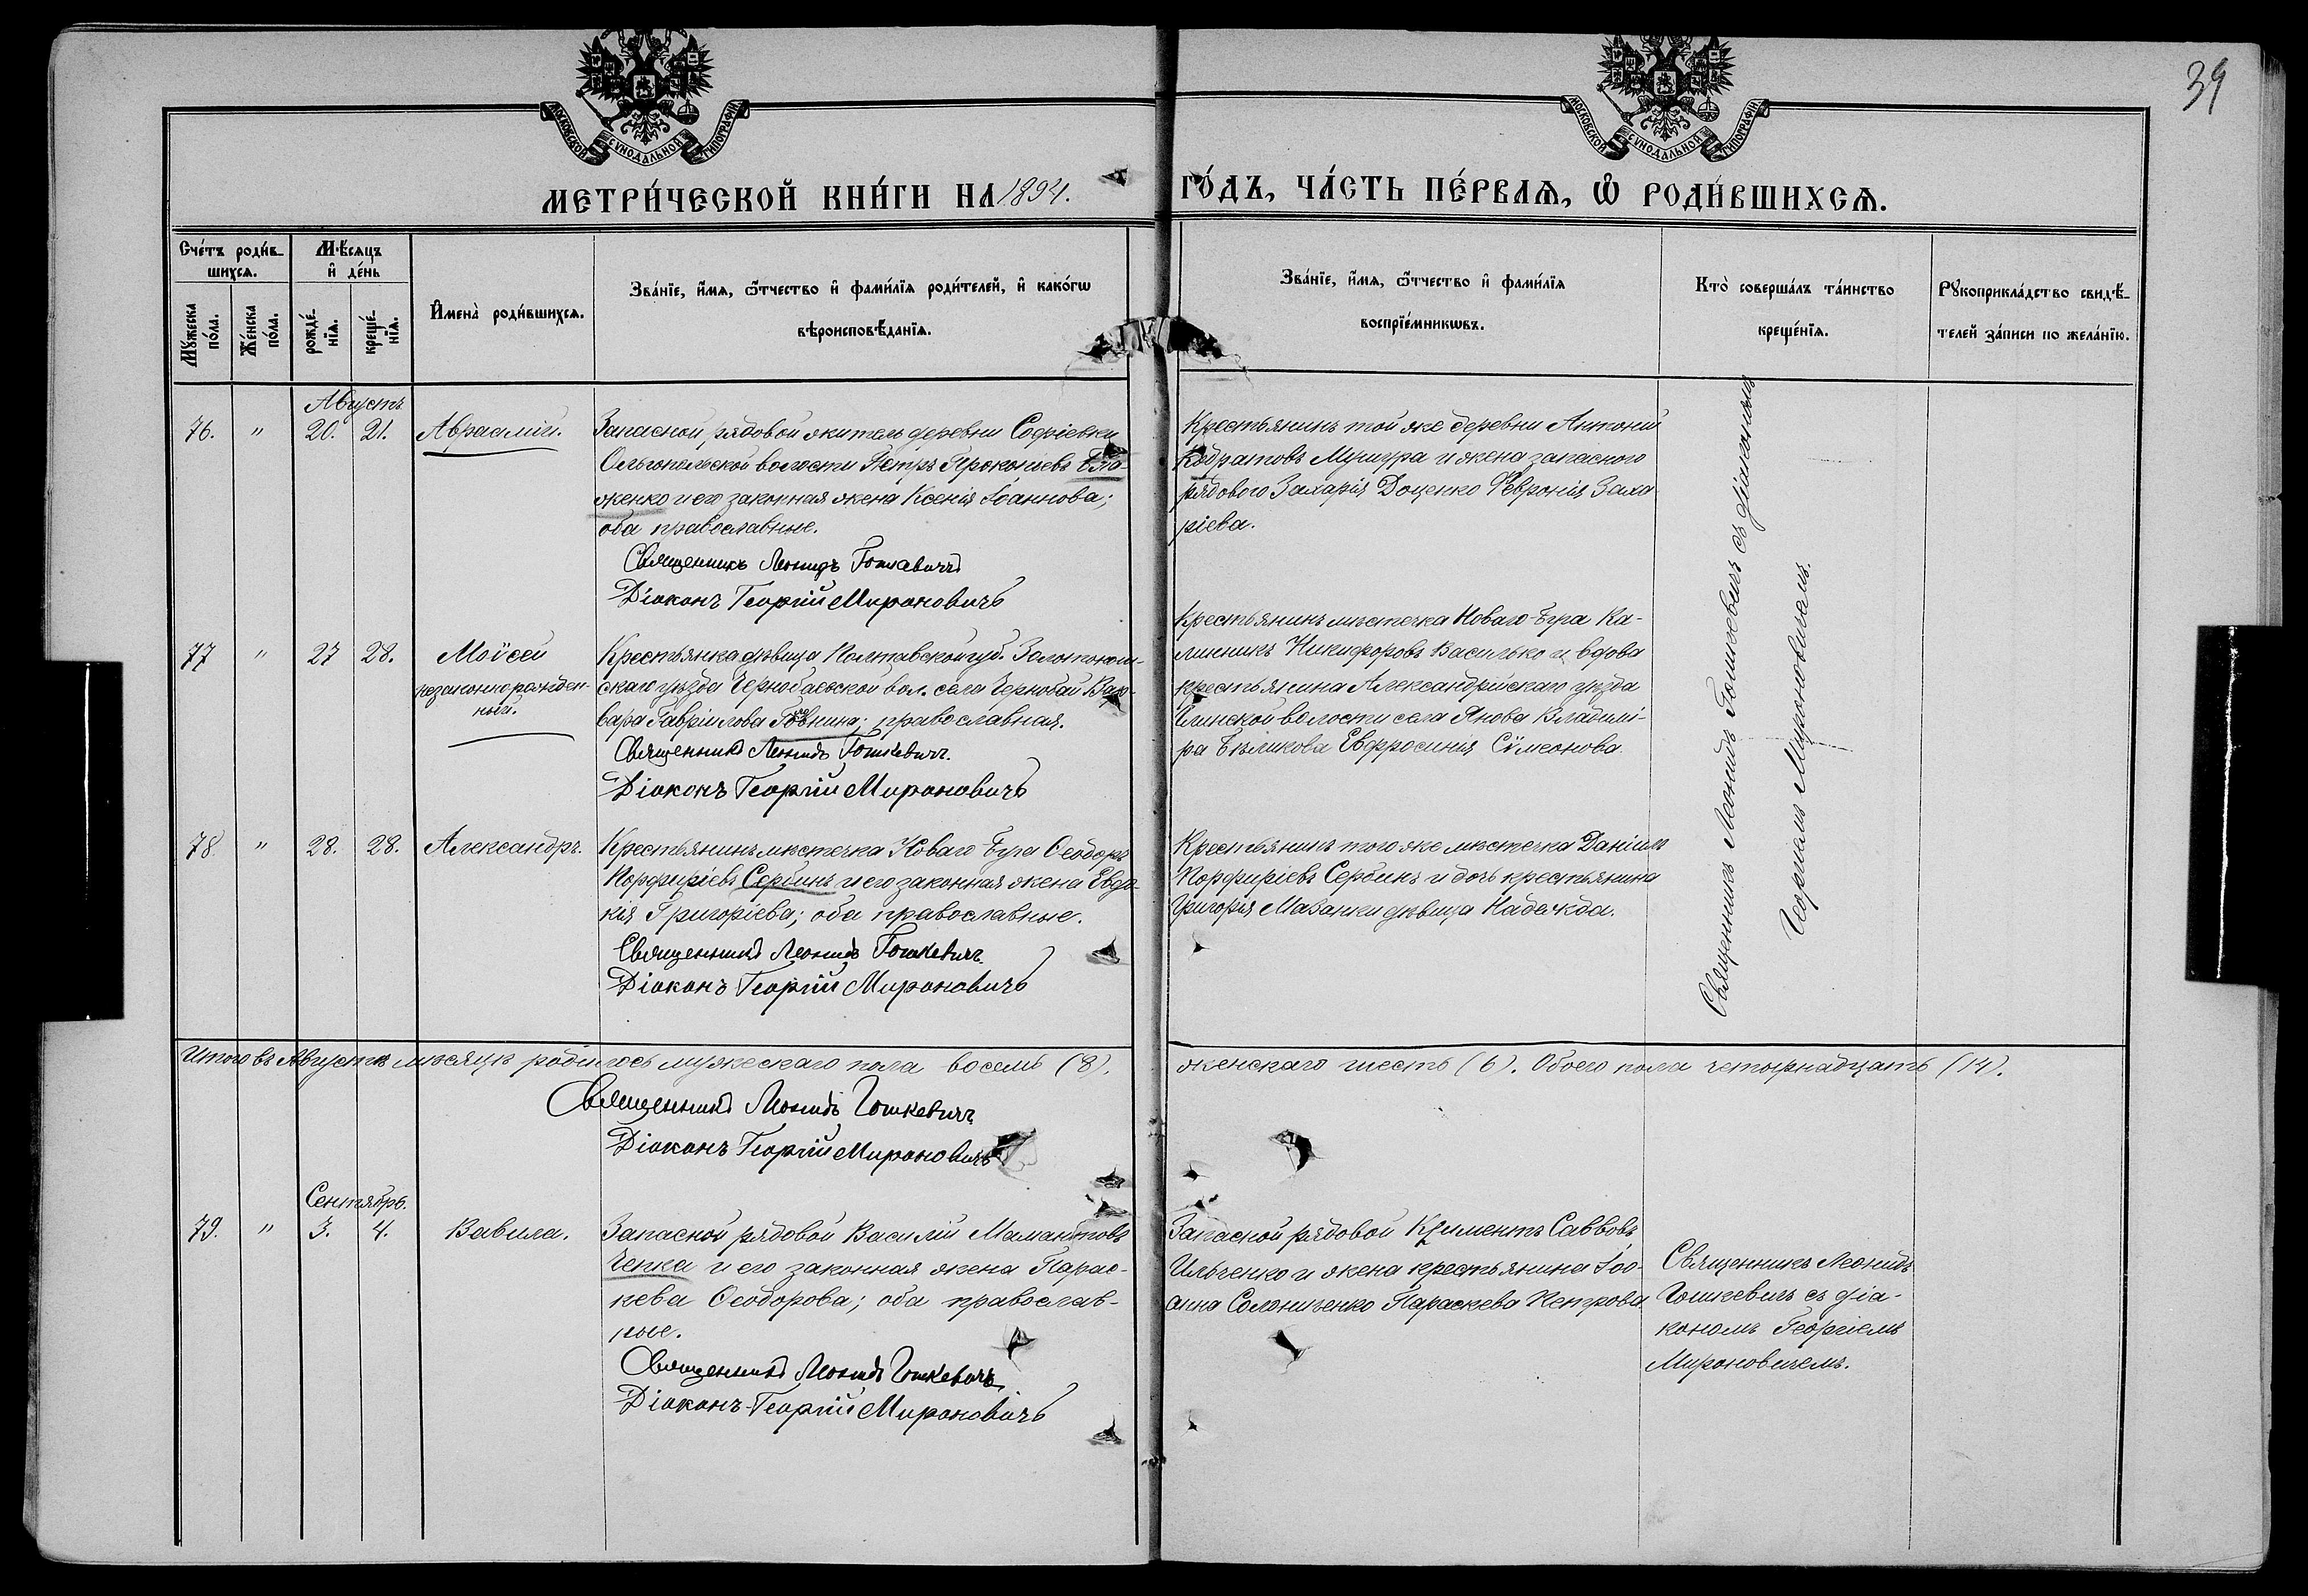 39
МОСКОВСКОЙ СѴНОДАЛЬНОЙ ТИПОГРАФІИ
МОСКОВСКОЙ СѴНОДАЛЬНОЙ ТИПОГРАФІИ
МЕТРИ́ЧЕСКОЙ КНИ́ГИ НА 1894. ГО́ДЪ, ЧА́СТЬ ПЕ́РВАѦ, Ѡ РОДИ́ВШИХСѦ.
Сче́тъ роди́в-
шихсѧ.
Мꙋжеска по́ла.
Же́нска по́ла.
Мѣ́сѧцъ
и҆ де́нь
рожде́-
нїѧ.
креще́-
нїѧ.
И҆мена̀ роди́вшихсѧ.
Зва́нїе, и҆́мѧ, ѻ҆́тчество и҆ фами́лїѧ роди́телей, и҆ како́гѡ
вѣроисповѣ́данїѧ.
Зва́нїе, и҆́мѧ, ѻ҆́тчество и҆ фами́лїѧ
воспрїе́мникѡвъ.
Кто̀ соверша́лъ та́инство
креще́нїѧ.
Рꙋкоприкла́дство свидѣ́-
телей за́писи по жела́нїю.
Августъ
76. " 20. 21. Авраамій.
Запасной рядовой житель деревни Софіевки
Ольгопольской волости Петръ Прокопіевъ
женко и его законная жена Ксенія Іоаннова;
оба православные.
Священникъ Леонидъ Гошкевичъ
Діаконъ Георгій Мироновичъ
Крестьянинъ той же деревни Антоній
Кодратовъ Мушура и жена запаснаго
рядового Захарія Доценко Февронія Заха
ріева.
77 " 27 28. Моѵсей
незаконнорожден-
ный.
Крестьянка дѣвица Полтавской губ. Золотонош-
скаго уѣзда Чернобаевской вол. села Чернобай Вар-
вара Гавріилова православная.
Священникъ Леонидъ Гошкевичъ.
Діаконъ Георгій Мироновичъ
Крестьянинъ мѣстечка Новаго-Буга Ка-
линникъ Никифоровъ Василько и вдова
крестьянина Александрійскаго уѣзда
Глинской волости села Янова Владимі-
ра Бѣликова Евфросинія Сѵмеонова.
78. " 28. 28. Александръ.
Крестьянинъ мѣстечка Новаго Буга Ѳеодоръ
Порфиріевъ Сербинъ и его законная жена Евдо-
кія Григоріева; оба православные.
Священникъ Леонидъ Гошкевичъ.
Діаконъ Георгій Мироновичъ
Крестьянинъ того же мѣстечка Даніилъ
Порфиріевъ Сербинъ и дочь крестьянина
Григорія Мазанки дѣвица Надежда.
Священникъ Леонидъ Гошкевичъ съ діакономъ
Георгіемъ Мироновичемъ.
Итого въ Августѣ мѣсяцѣ родилось мужескаго пола восемь (8). женскаго шесть (6). Обоего пола четырнадцать (14).
Священникъ Леонидъ Гошкевичъ
Діаконъ Георгій Мироновичъ
Сентябрь.
79. " 3. 4. Вавила.
Запасной рядовой Василій Мамантовъ
Чепка и его законная жена Парас-
кева Ѳеодорова; оба православ-
ные.
Священникъ Леонидъ Гошкевичъ
Діаконъ Георгій Мироновичъ
Запасной рядовой Климентъ Саввовъ
Ильченко и жена крестьянина Іоо-
анна Солониченко Параскева Петрова
Священникъ Леонидъ
Гошкевичъ съ діа-
кономъ Георгіемъ
Мироновичемъ.